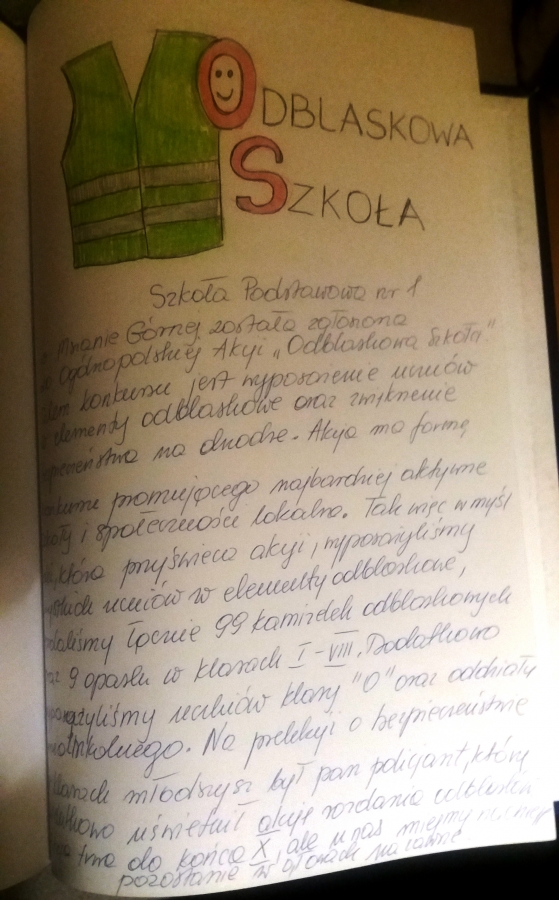 ODBLASKOWA
SZKOŁA
Szkoła Podstawowa nr 1
Mnanie Górnej została zgłoszona
Ogólnopolskiej Akcji „Odblaskowa Szkoła”.
konkursu jest wyposażenie uczniów
elementy odblaskowe oraz zwiększenie
na drodze. Akcja ma formę
promującego najbardziej aktywne
i społeczności lokalne. Tak więc w myśl
która przyświeca akcji, wyposażyliśmy
uczniów w elementy odblaskowe,
łącznie 99 kamizelek odblaskowych
9 opasek w klasach I-VIII. Dodatkowo
uczniów klasy "0" oraz oddziały
Na prelekcji o bezpieczeństwie
młodszych był pan policjant, który
uświetnił akcję rozdania odblasków
trwa do końca X, ale u nas miejmy
pozostanie w